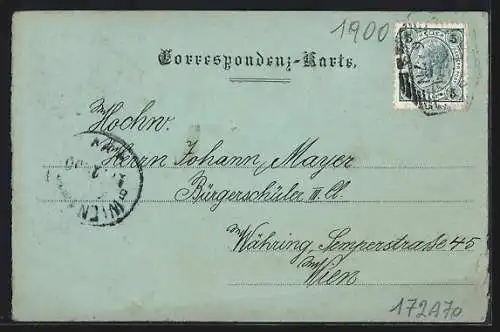 1900
5 5
Correspondenz-Karte.
An
Hochw.
Herrn Johann Mayer
Bürgerschüler III. Cl.
in Währing, Semperstraße 45
bei Wien
WIEN
172A70